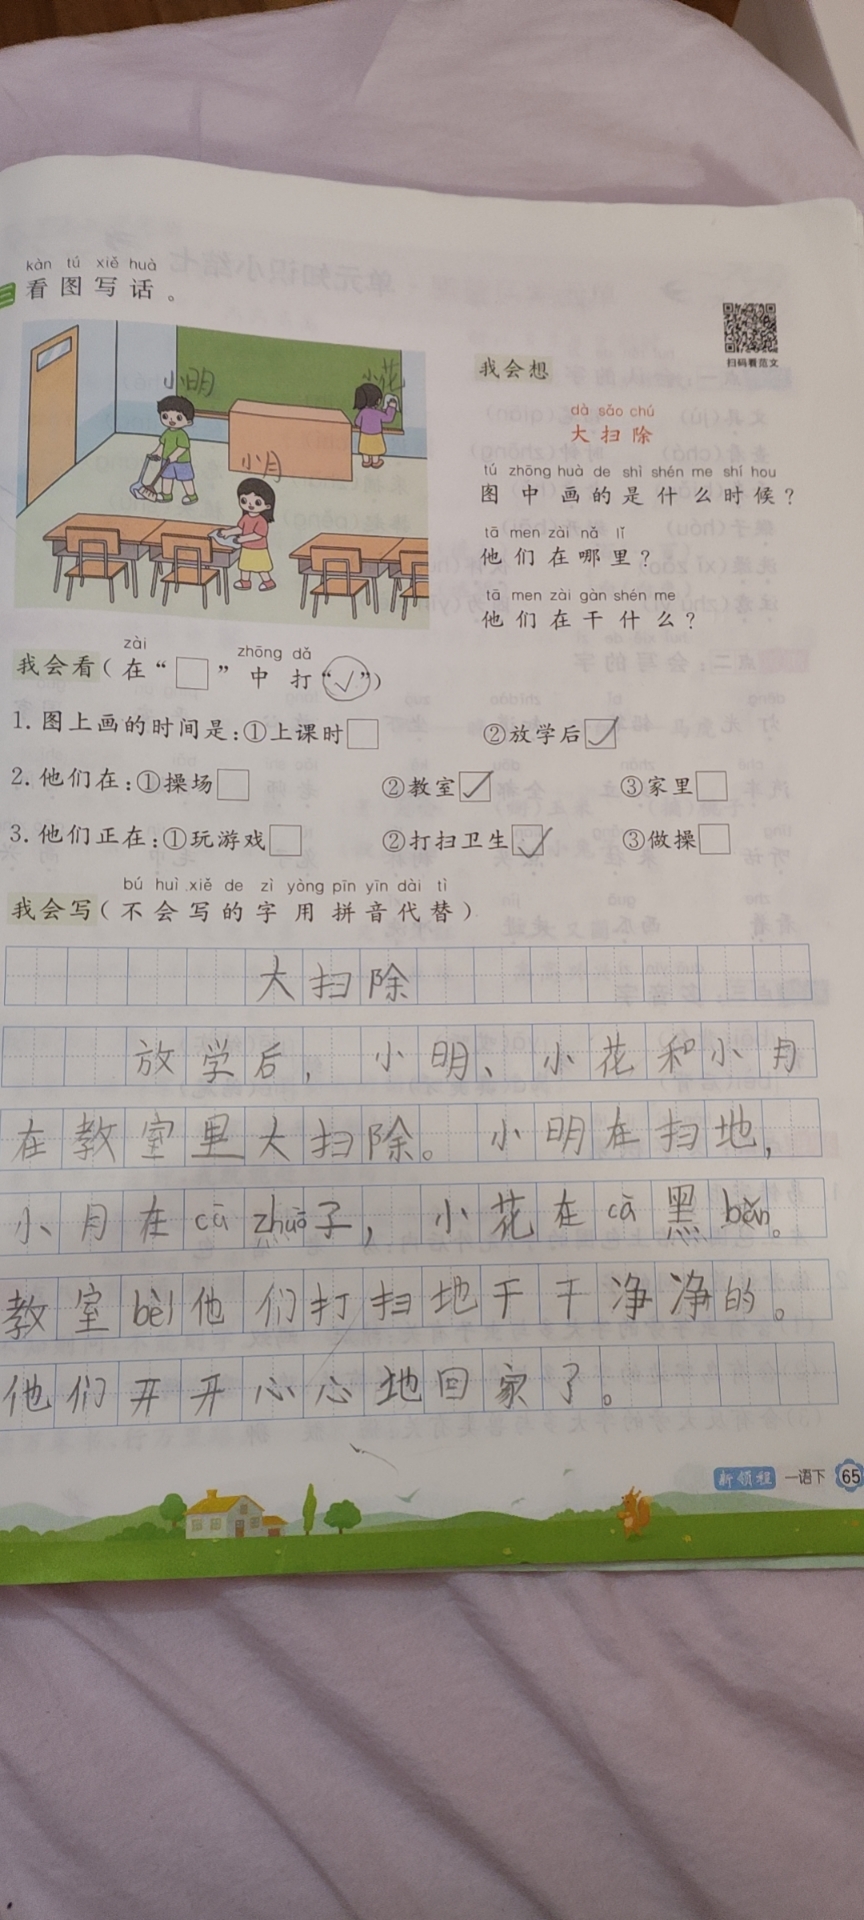 kàn tú xiě huà
三 看图写话。
扫码看范文
小明
小花
小月
我会想
dà sǎo chú
大扫除
tú zhōng huà de shì shén me shí hou
图中画的是什么时候？
tā men zài nǎ lǐ
他们在哪里？
tā men zài gàn shén me
他们在干什么？
zài zhōng dǎ
我会看（在“□”中打“✓”）
1.图上画的时间是：①上课时□ ②放学后☑
2.他们在：①操场□ ②教室☑ ③家里□
3.他们正在：①玩游戏□ ②打扫卫生☑ ③做操□
bú huì xiě de zì yòng pīn yīn dài tì
我会写（不会写的字用拼音代替）
大扫除
放学后，小明、小花和小月
在教室里大扫除。小明在扫地，
小月在cā zhuō子，小花在cā黑bǎn。
教室bèi他们打扫地干干净净的。
他们开开心心地回家了。
新领程 一语下 65